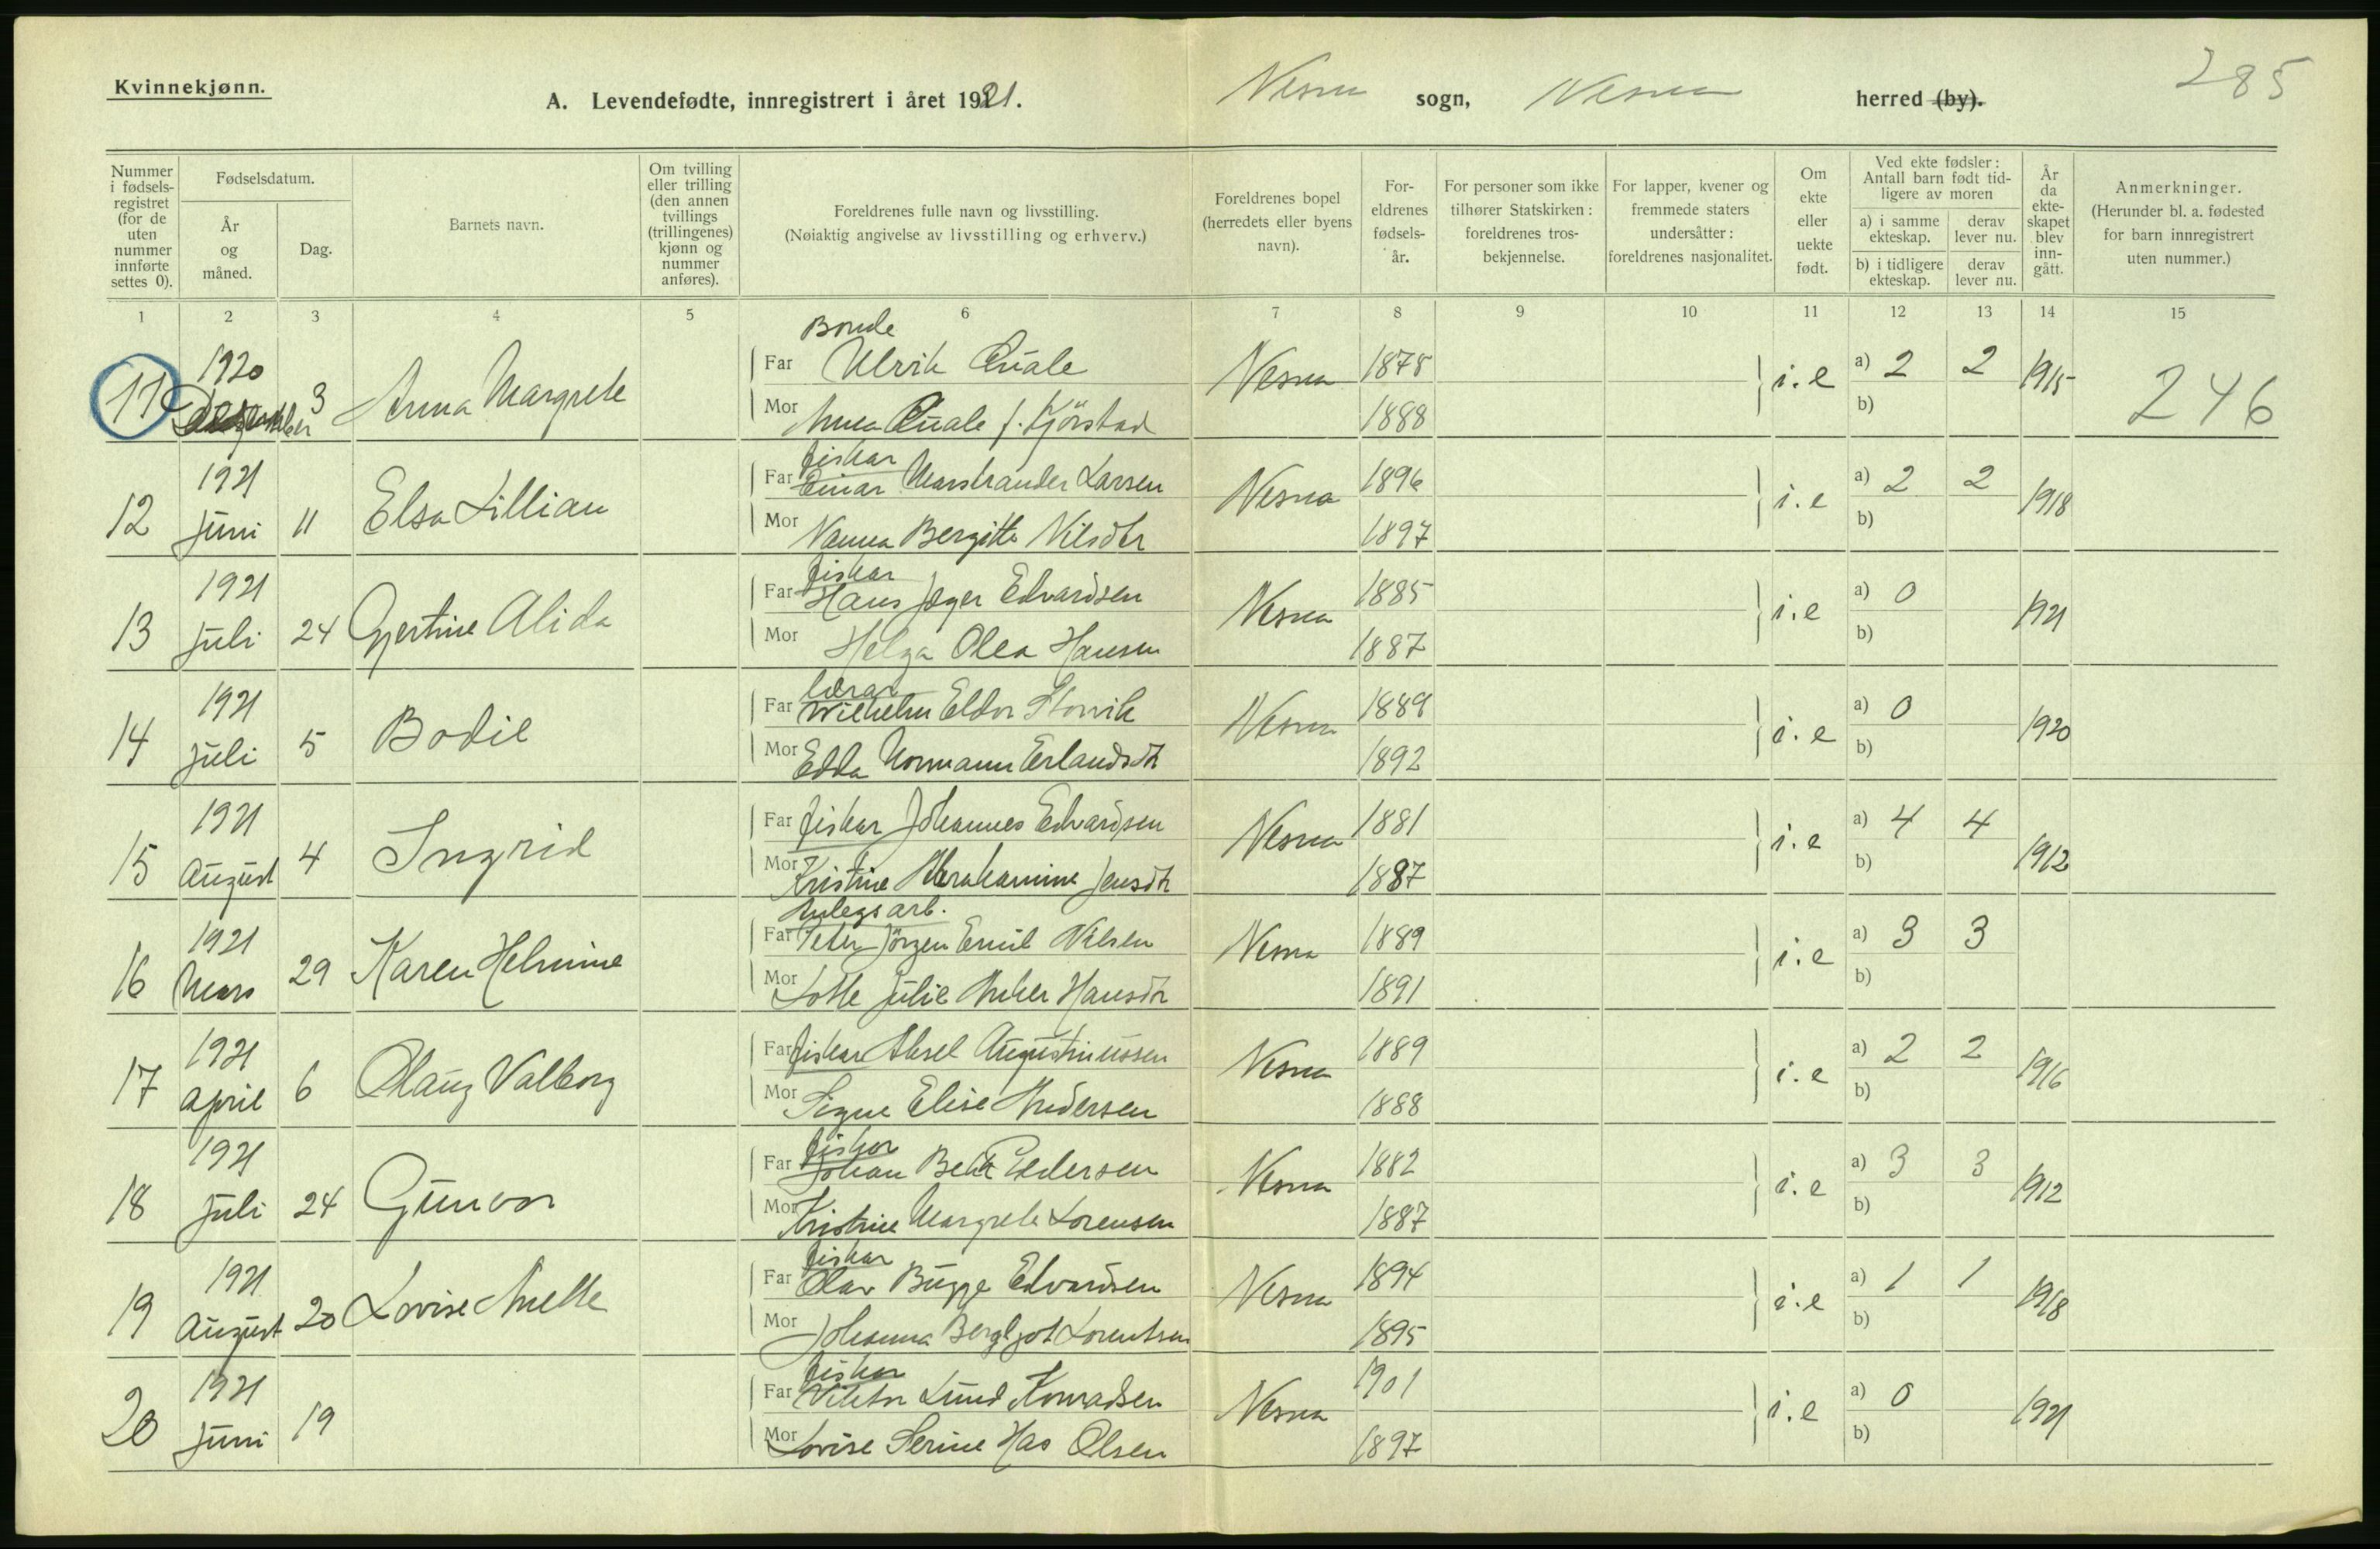 Kvinnekjønn.
A. Levendefødte, innregistrert i året 1921.
Nesna sogn, Nesna herred (by).
285
Nummer i fødselsregistret (for de uten nummer innførte settes 0).
Fødselsdatum.
År og måned.
Dag.
Barnets navn.
Om tvilling eller trilling (den annen tvillings (trillingenes) kjønn og nummer anføres).
Foreldrenes fulle navn og livsstilling.
(Nøiaktig angivelse av livsstilling og erhverv.)
Foreldrenes bopel (herredets eller byens navn).
Foreldrenes fødselsår.
For personer som ikke tilhører Statskirken: foreldrenes trosbekjennelse.
For lapper, kvener og fremmede staters undersåtter: foreldrenes nasjonalitet.
Om ekte eller uekte født.
Ved ekte fødsler: Antall barn født tidligere av moren
a) i samme ekteskap.
derav lever nu.
b) i tidligere ekteskap.
derav lever nu.
År da ekteskapet blev inngått.
Anmerkninger.
(Herunder bl. a. fødested for barn innregistrert uten nummer.)
1 2 3 4 5 6 7 8 9 10 11 12 13 14 15
Bonde
11 1920 Desember 3 Anna Margrete Far Ulrik Quale Nesna 1878 i.e a) 2 2 1915 246
Mor Anna Quale f. Kjörstad 1888 b)
fiskar
12 1921 juni 11 Elsa Lillian Far Einar Marstrander Larsen Nesna 1896 i.e a) 2 2 1918
Mor Nanna Bergitte Nilsdtr 1897 b)
fiskar
13 1921 juli 24 Gjertine Alida Far Hans Jæger Edvardsen Nesna 1885 i.e a) 0 1921
Mor Helga Olea Hansen 1887 b)
lærar
14 1921 juli 5 Bodil Far Wilhelm Eldor Storvik Nesna 1889 i.e a) 0 1920
Mor Edda Normann Erlandsdtr 1892 b)
15 1921 August 4 Ingrid Far fiskar Johannes Edvardsen Nesna 1881 i.e a) 4 4 1912
Mor Kristine Abrahamine Jensdtr 1887 b)
Anlegsarb.
16 1921 Mars 29 Karen Helmine Far Peter Jörgen Emil Nilsen Nesna 1889 i.e a) 3 3
Mor Lotte Julie Anker Hansdtr 1891 b)
17 1921 april 6 Olaug Valborg Far fiskar Aksel Augustinussen Nesna 1889 i.e a) 2 2 1916
Mor Signe Elise Andersen 1888 b)
fiskar
18 1921 juli 24 Gunvor Far Johan Pedersen Nesna 1882 i.e a) 3 3 1912
Mor Kristine Margrete Lorensen 1887 b)
fiskar
19 1921 August 20 Lovise Anette Far Olav Bugge Edvardsen Nesna 1894 i.e a) 1 1 1918
Mor Johanna Bergljot Lorentsen 1895 b)
fiskar
20 1921 juni 19 Far Viktor Lund Konradsen Nesna 1901 i.e a) 0 1921
Mor Lovise Serine Has Olsen 1897 b)